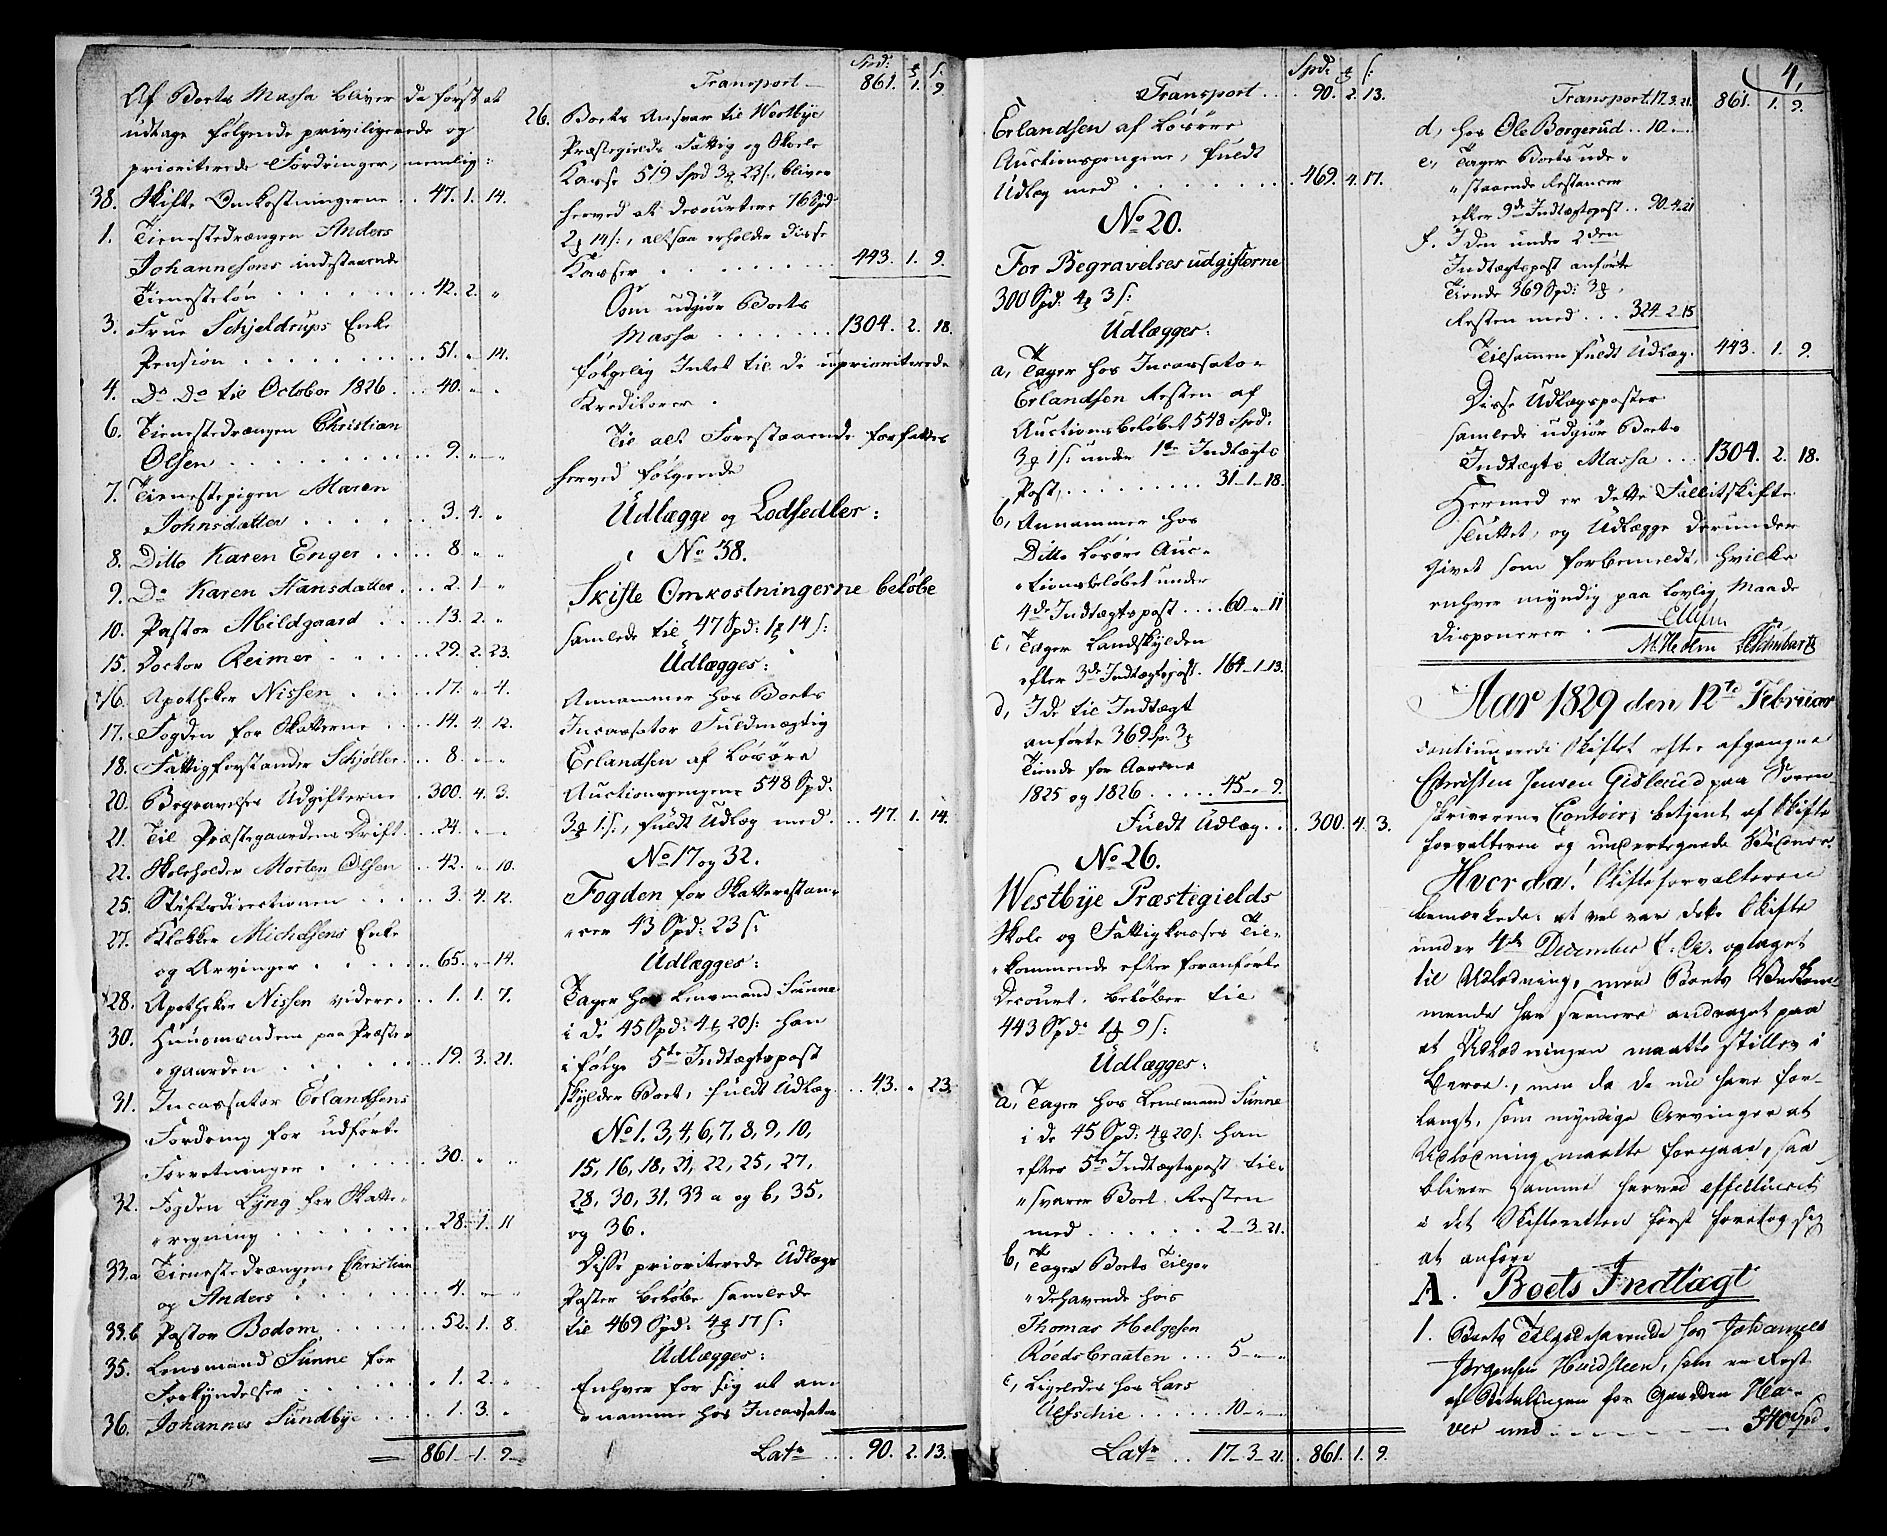 Af Boets Massa bliver da først at
udtage følgende priviligerede og
prioriterede Fordringer, nemlig:
38. Skifte Omkostningerne . . 47. 1. 14.
1. Tienestedrængen Anders
Johannesens indestaaende
Tienesteløn . . . . 42. 2. "
3. Frue Schjeldrups Enke
Pension . . . . 51. " 14.
4. Do Do til October 1826. . . 40. " "
6. Tienestedrængen Christian
Olsen . . . . 9. " "
7. Tienestepigen Maren
Johnsdatter . . . . 3. 4. "
8. Ditto Karen Enger . . . 8. " "
9. Do Karen Hansdatter . . . 2. 1. "
10. Pastor Mildgaard . . . 13. 2. "
15. Doctor Reimer . . . . 29. 2. 23.
16. Apotheker Nissen . . . 17. " 4.
17. Fogden for Skatterne . . . 14. 4. 12.
18. Fattigforstander Schjøller . . 8. " "
20. Begravelses Udgifterne . . 300. 4. 3.
21. Til Præstegaardens Drift . . 24. " "
22. Skoleholder Morten Olsen . . 42. " 10.
25. Stiftsdirectionen . . . . 3. 4. 12.
27. Klokker Michelsens Enke
og Arvinger . . . . 65. " 14.
28. Apotheker Nissen videre . . . 1. 1. 7.
30. Huusmændene paa Præste-
"gaarden . . . . 19. 3. 21.
31. Incassator Erlandsens
Fordring for udførte
Forretninger . . . . 30. " "
32. Fogden Lyng for Skatte-
"regning . . . . 28. 1. 11
33.a Tienestedrængene Christian
og Anders . . . . 4. " "
33.b Pastor Bodom . . . . 52. 1. 8.
35. Lensmand Sunne for
Forkyndelser . . . . 1. 2. "
36. Johannes Sundbye . . . 1. 3. "
= 861. 1. 9.
Spd: s:
Transport — 861. 1. 9.
26. Boets Ansvar til Westbye
Præstegields Fattig og Skole
Kasse 519 Spd 3 23s:, bliver
herved at decourtere 76 Spd:
2 14s:, altsaa erholder disse
Kasser . . . . 443. 1. 9.
Som udgiør Boets
Massa . . . . 1304. 2. 18.
følgelig Intet til de uprioriterede
Kreditorer.
Til alt Forestaaende forfattes
herved følgende
Udlægge og Lodsedler:
No 38.
Skifte Omkostningerne beløbe
samlede til 47 Spd: 1 14s:
Udlægges:
Annammer hos Boets
Incassator Fuldmægtig
Erlandsen af Løsøre
Auctionspengene 548 Spd.
3 1s:, fuldt Udlæg med . . 47. 1. 14.
No 17 og 32.
Fogden for Skatterestan-
"cer 43 Spd: 23s:
Udlægges:
Tager hos Lensmand Sunne
i de 45 Spd: 4 20s: han
ifølge 5te Indtægtspost
skylder Boet, fuldt Udlæg . . 43. " 23.
No 1. 3, 4, 6, 7, 8, 9, 10,
15, 16, 18, 21, 22, 25, 27,
28, 30, 31. 33 a og b, 35,
og 36.
Disse prioriterede Udlægs
Poster beløbe samlede
til 469 Spd: 4 17s:
Udlægges:
Enhver for sig at an-
"namme hos Incassator
Latr . . . 90. 2. 13.
Spd: s:
Transport . . 90. 2. 13.
Erlandsen af Løsøre
Auctionspengene, fuldt
Udlæg med . . . . 469. 4. 17.
No 20.
For Begravelses udgifterne
300 Spd: 4 3s:
Udlægges:
a, Tager hos Incassator
Erlandsen Resten af
Auctionsbeløbet 548 Spd.
3 1s: under 1te Indtægts
Post, . . . . 31. 1. 18.
b, Annammer hos
Ditto Løsøre Auc-
"tionsbeløbet under
4de Indtægtspost . . . 60. " 11
c, Tager Landskylden
efter 3de Indtægtspost . 164. 1. 13.
d, I de til Indtægt
anførte 369 Sp. 3
Tiende for Aarene
1825 og 1826 . . . . 45. " 9.
Fuldt Udlæg . . 300. 4. 3.
No 26.
Westbye Præstegields
Skole og Fattigkasses Til-
"kommende efter foranførte
Decourt. beløber til
443 Spd: 1 9s:
Udlægges:
a, Tager hos Lensmand Sunne
i de 45 Spd: 4 20s: han
efter 5te Indtægtspost til-
"svarer Boet. Resten
med . . . . 2. 3. 21.
b, Tager Boets Tilgo-
"dehavende hos
Thomas Helgesen
Røedsbraaten . . . 5. " "
c, Ligeledes hos Lars
Ulfschie . . . . 10. " "
Latr . . 17. 3. 21. 861. 1. 9.
4.
Transport. 17. 3. 21. 861. 1. 9.
d, hos Ole Borgerud . . 10. "
e, Tager Boets ude-
"staaende Restancer
efter 9de Indtægtspost . . 90. 4. 21
f. I den under 2den
Indtægtspost anførte
Tiende 369 Spd: 3
Resten med . . . 324. 2. 15
Tilsammen fuldt Udlæg . 443. 1. 9.
Disse Udlægsposter
samlede udgiør Boets
Indtægts Massa . . . 1304. 2. 18.
Hermed er dette Fallitskifte
sluttet, og Udlægge derunder
givet som forbemeldt, hvilke
enhver myndig paa lovlig Maade
disponerer.
M: Hesten Schubart
Aar 1829 den 12te Februar
continuerede Skiftet efter afgangne
Christen Jensen Gislerud paa Soren-
skriverens Contoir, betjent af Skifte
forvalteren og undertegnede Vidner.
Hvorda! Skifteforvalteren
bemærkede: at vel var dette Skifte
under 4de December f. A. optaget
til Udlodning, men Boets Vedkom-
mende har senere andraget paa
at Udlodningen maatte stilles i
Beroe, men da de nu have for-
langt, som myndige Arvinger at
Udlodning maatte foregaae, saa
bliver samme herved effectueret
i det Skifteretten først foretog sig
at anføre
A. Boets Indtægt
1. Boets Tilgodehavende hos Johannes
Jørgensen Huidsteen, som en Rest
af Betalingen for Gaarden Ha-
ver med . . . . 540 Spd.